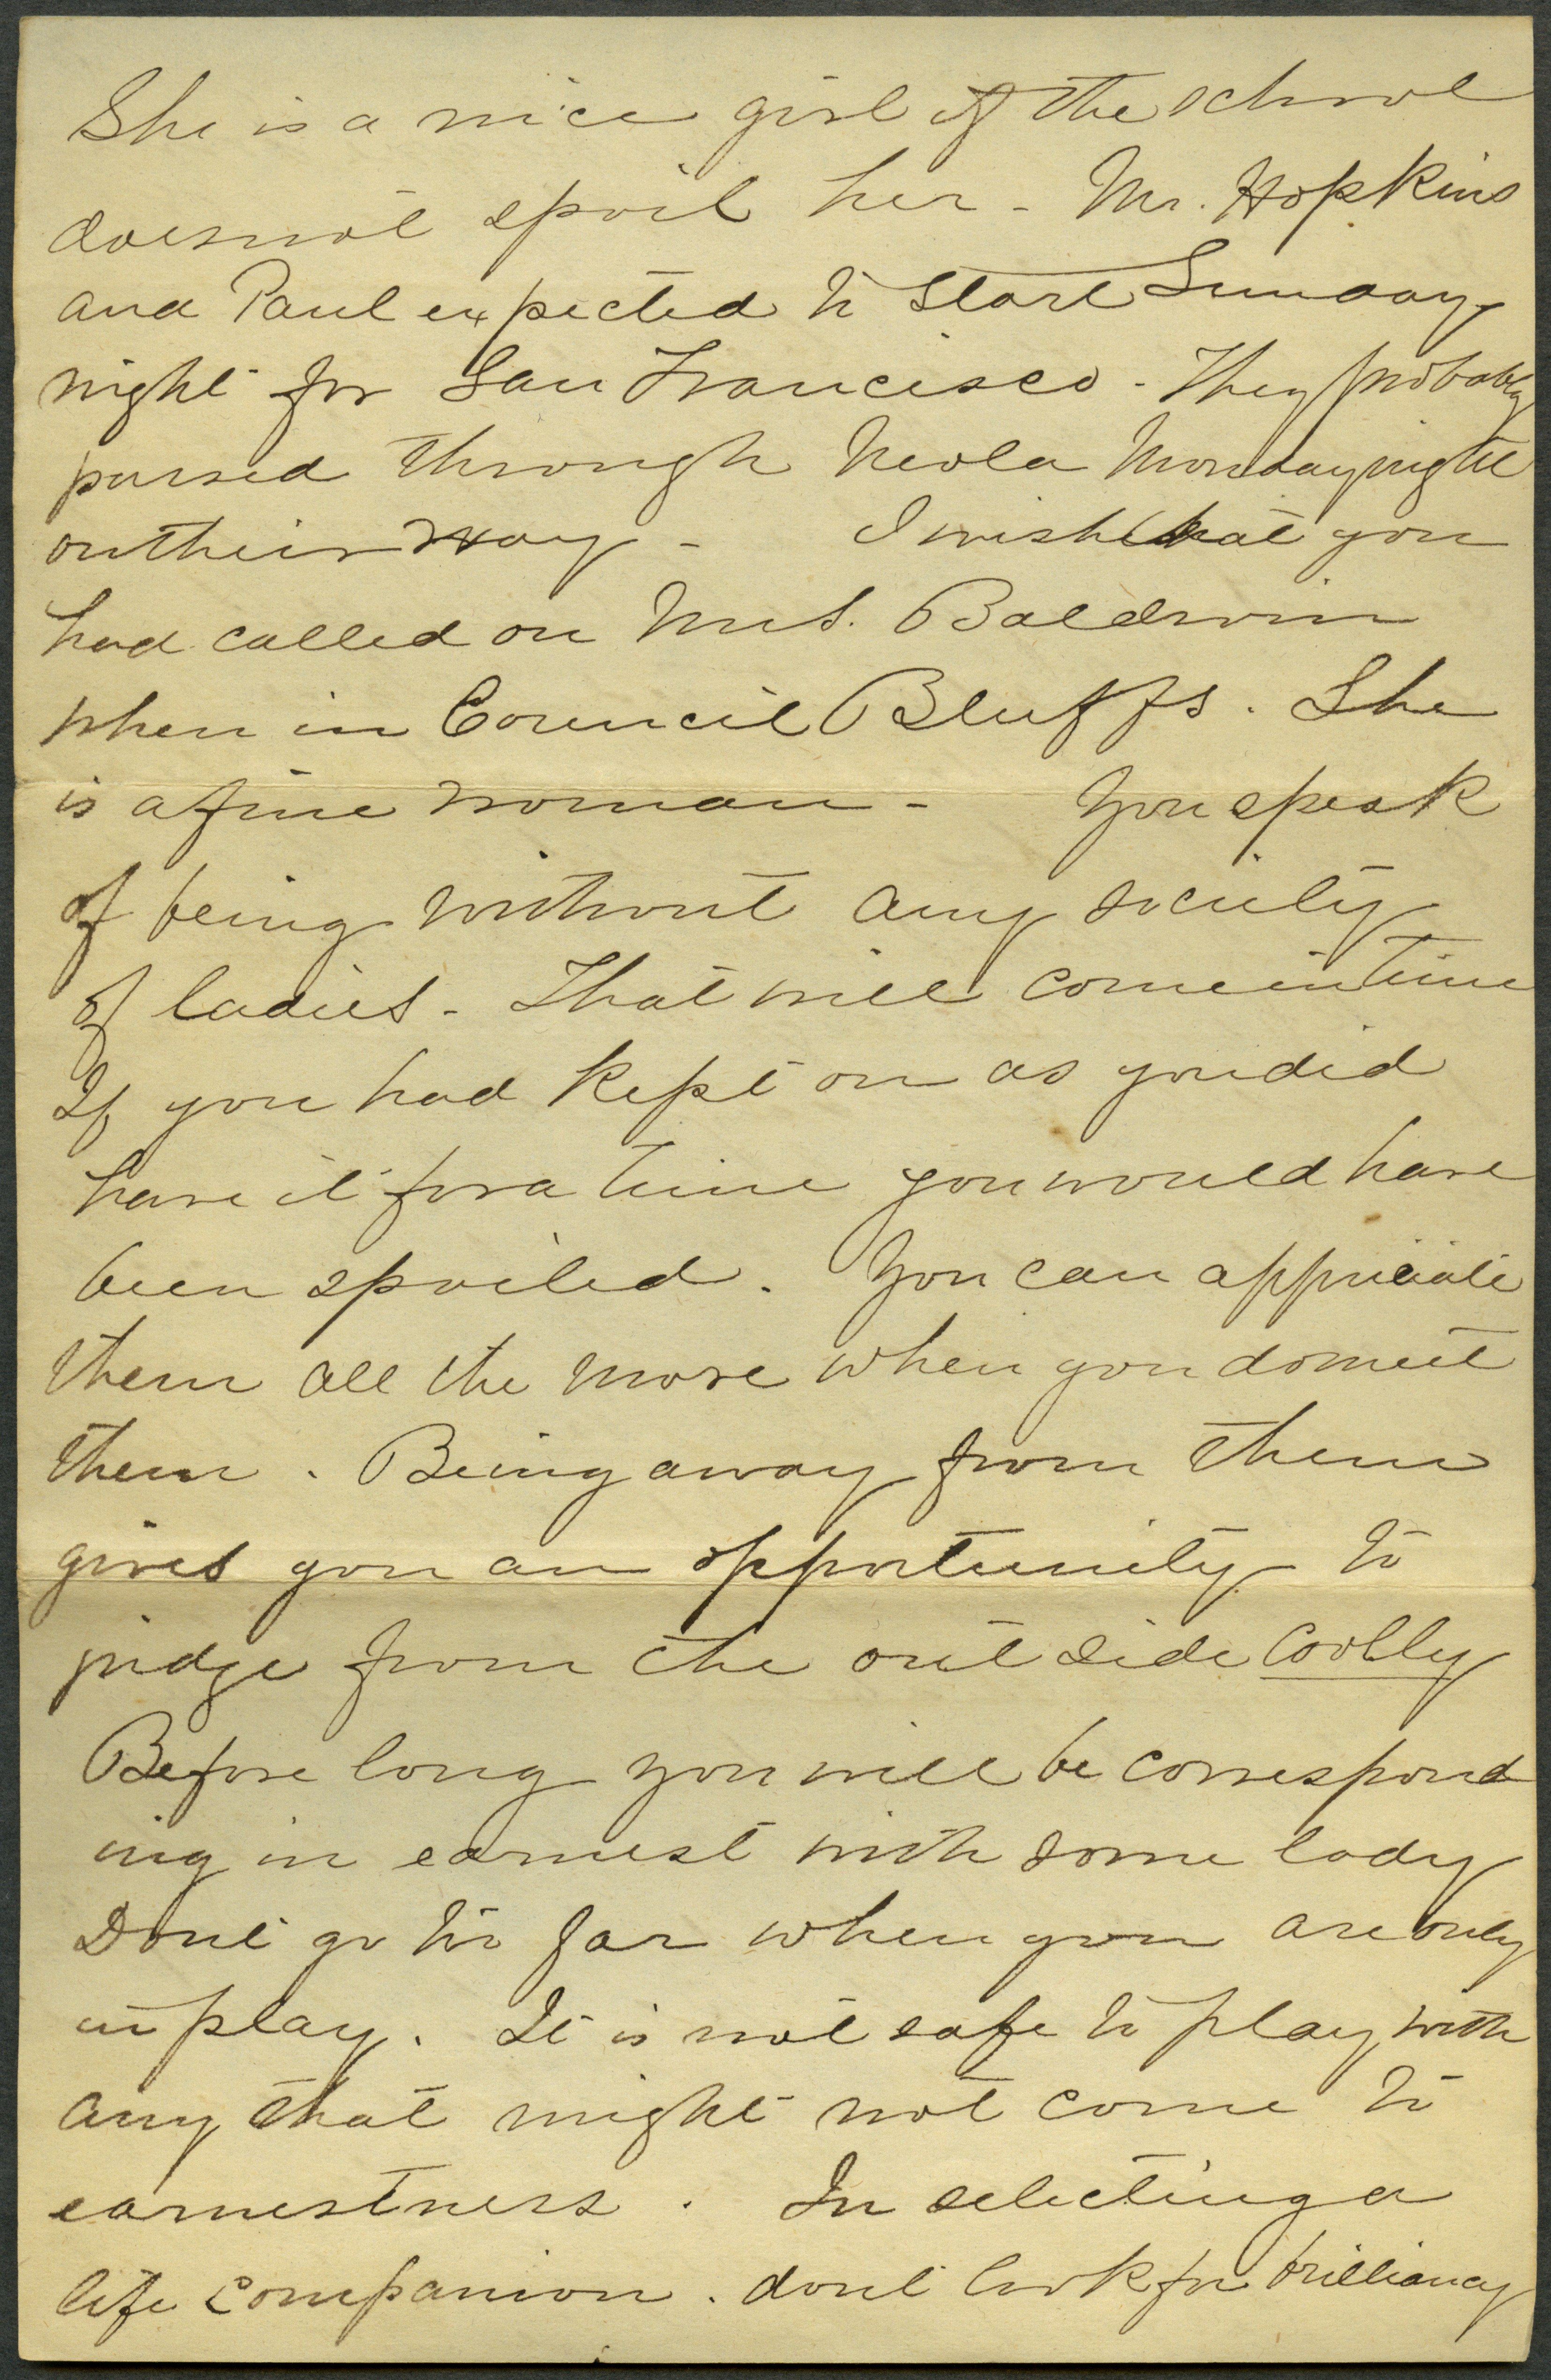 She is a nice girl if the school
does not spoil her - Mr. Hopkins
and Paul expected to start Sunday
night for San Francisco - They probably
passed through Neola Monday night
on their way - I wish that you
had called on Mrs. Baldwin
when in Council Bluffs. She
is a fine woman - You speak
of being without any society
of ladies - That will come in time
If you had kept on as you did
have it for a time you would have
been spoiled. You can appreciate
them all the more when you do meet
them. Being away from them
gives you an opportunity to
judge from the out side coolly
Before long you will be correspond
ing in earnest with some lady
Dont go too far when you are only
in play. It is not safe to play with
any that might not come to
earnestness. In selecting a
life companion. dont look for brilliancy